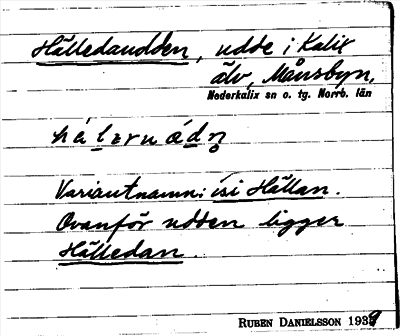 Hälledaudden, udde i Kalix
älv, Månsbyn,
Nederkalix sn o. tg. Norrb. län
Variantnamn: isi Hällan.
Ovanför udden ligger
Hälledan.
RUBEN DANIELSSON 1939